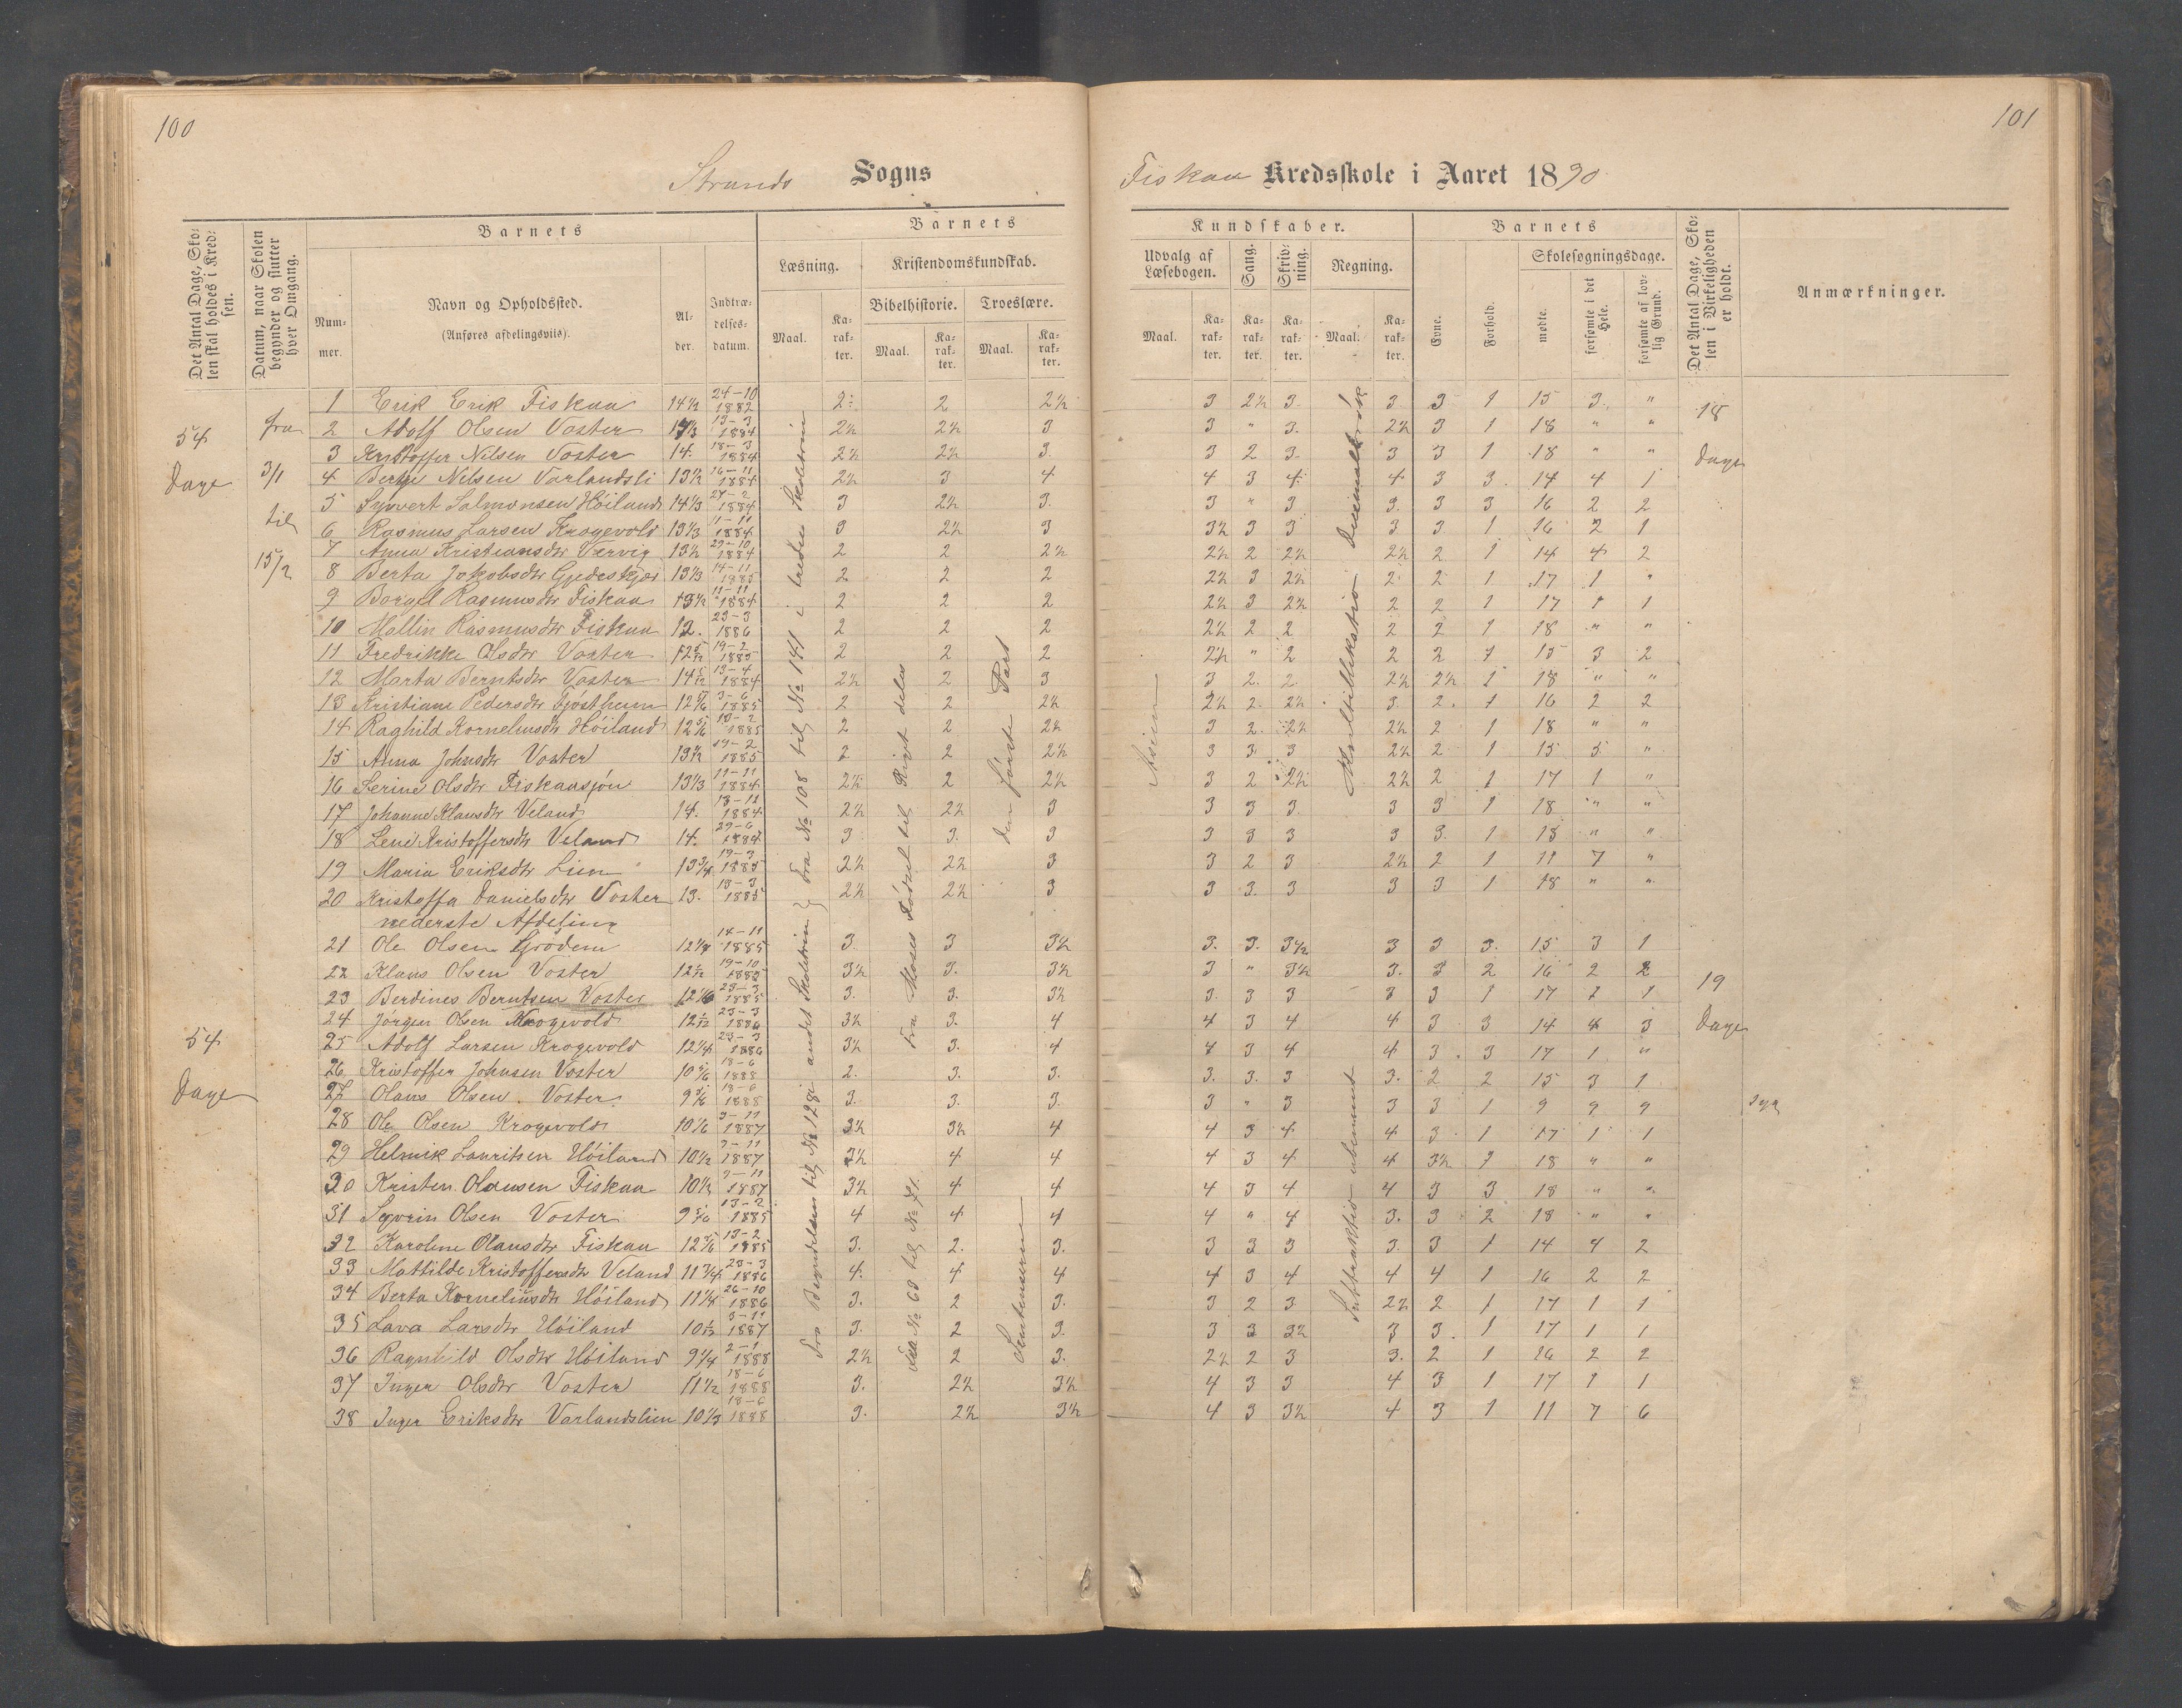 100
101
Strands Sogns
Fiskaa Kredsskole i Aaret 1890
Det Antal Dage, Skolen skal holdes i Kredsen.
Datum, naar Skolen begynder og slutter hver Omgang.
Barnets
Barnets
Kundskaber.
Barnets
Det Antal Dage, Skolen i Virkeligheden er holdt.
Anmærkninger.
Nummer.
Navn og Opholdssted.
(Anføres afdelingsviis).
Alder.
Indtrædelsesdatum.
Læsning.
Kristendomskundskab.
Bibelhistorie. Troeslære.
Maal. Karakter. Maal. Karakter. Maal. Karakter.
Udvalg af Læsebogen.
Sang.
Skrivning.
Regning.
Maal. Karakter. Karakter. Karakter. Maal. Karakter.
Evne.
Forhold.
Skolesøgningsdage.
mødte.
forsømte i det Hele.
forsømte af lovlig Grund.
54 Dage
fra 3/1 til 15/2
18 Dage
1 Erik Erik Fiskaa 14½ 24-10 1882 2 2 2½ 3 2½ 3 3 3 1 15 3 "
2 Adolf Olsen Voster 13-3 1884 2½ 2½ 3 3 " 3 2½ 3 1 18 " "
3 Kristoffer Nilsen Voster 14. 18-3 1884 2½ 2½ 3. 3 2 3 3 3 1 18 " "
4 Berge Nilsen Varlandsli 13½ 16-11 1884 2½ 3 4 4 3 4 4 3 3 14 4 1
5 Syvert Salmonsen Høiland 14⅓ 27-2 1884 3 2½ 3. 3 " 3 3. 3 3 16 2 2
6 Rasmus Larsen Krogevold 13⅓ 11-11 1884 3 2½ 3 3½ 3 3 3 3. 1 16 2 1
7 Anna Kristiansdtr Tærvig 13½ 29-10 1884 2 2 2½ 2½ 2 2½ 2½ 2 1 14 4 2
8 Berta Jokobsdtr Gjedeskjær 13⅓ 14-11 1885 2 2 2 2½ 3 2½ 2 2 1 17 1 "
9 Borgel Rasmusdtr Fiskaa 13½ 11-11 1884 2 2 2 2½ 3 2½ 2 2 1 17 1 1
10 Mallin Rasmusdtr Fiskaa 12. 23-3 1886 2 2 2 2½ 2 2 2 2 1 18 " "
11 Fredrikke Olsdtr Voster 19-2 1885 2 2 2 2½ " 2 2 2 1 15 3 2
12 Marta Berntsdtr Voster 13-4 1884 2½ 2 3 3 2. 2. 2½ 2½ 1 18 " "
13 Kristiane Pedersdtr Tjøstheim 3-6 1885 2 2 2½ 2½ 2. 2½ 3 2. 1 16 2 2
14 Raghild Kornelinsdtr Høiland 13-2 1885 2 2 2½ 3 2. 2½ 2½ 2 1 18 " "
15 Anna Johnsdtr Voster 13½ 19-2 1885 2 2 2½ 3 3 3 2½ 2 1 15 5 "
16 Serine Olsdtr Fiskaasjøn 13⅓ 11-11 1884 2½ 2 2½ 3 2 2½ 2½ 2 1 17 1 "
17 Johanne Klausdtr Veland 14. 13-11 1884 2½ 2½ 3 3 3 3. 3 3 1 18 " "
18 Lene Kristoffersdtr Veland 14. 29-6 1884 3 3. 3 3 3 3 3 3. 1 18 " "
19 Maria Eriksdtr Lien 13¾ 19-3 1885 2½ 2½ 3 3 2 3 2½ 2 1 11 7 "
20 Kristoffa Danielsdtr Voster 13. 13-3 1885 2½ 2½ 3 3 3. 3 3 3 1 18 " "
nederste Afdeling
21 Ole Olsen Grødem 14-11 1885 3 3 3½ 3. 3. 3½ 3 3 3. 15 3 1
22 Klaus Olsen Voster 19-10 1885 3½ 3. 3½ 3 " 3½ 3. 3 2 16 2 2
23 Berdines Berntsen Voster 23-3 1885 3. 3. 3½ 3. 3 3 3 3 1 17 1 1
24 Jørgen Olsen Krogevold 23-3 1886 3½ 3. 4 4 3 4 4 3 3 14 4 3
25 Adolf Larsen Krogevold 12¼ 23-3 1886 3½ 3. 4 4 3 4 4 3. 3 17 1 "
26 Kristoffer Johnsen Voster 10⅚ 18-6 1888 2. 3. 3. 3. 3. 3 3. 2 2 15 3 1
27 Olaus Olsen Voster 9⅚ 18-6 1888 3. 3. 3. 3 " 3 3 3 1 9 9 9
28 Ole Olsen Krogevold 10⅙ 3-11 1887 3½ 3½ 4 4 3 4 4 3 1 17 1 1
29 Helmik Lauritsen Høiland 10½ 3-11 1887 3½ 4 4 4 3 4 4 3½ 1 18 " "
30 Kristen Olausen Fiskaa 10½ 3-11 1887 3½ 4 4 4 3 4 4 3 3 18 " "
31 Severin Olsen Voster 9⅚ 13-2 1885 4 4 4 4 " 4 3. 3 2 18 " "
32 Karoline Olausdtr Fiskaa 12⅚ 13-2 1885 3. 2. 3. 3 3 3 3. 3 1 14 4 2
33 Mattilde Kristoffersdtr Veland 11¾ 23-3 1886 4. 4 4 4 3 4 4 4 1 16 2 2
34 Berta Kornelinsdtr Høiland 11¼ 26-10 1886 3. 2 3. 3 2 3 2½ 2 1 17 1 1
35 Lava Larsdtr Høiland 3-11 1887 3. 2 3. 3 3 3½ 3 3. 1 17 1 1
36 Ragnhild Olsdtr Høiland 9¼ 2-1 1888 2½ 2 3. 2½ 2 3 3. 2 1 16 2 2
37 Inger Olsdtr Voster 11½ 18-6 1888 3. 2½ 3½ 4 3 3 4 3 1 17 1 1
38 Inger Eriksdtr Varlandslien 10⅓ 18-6 1888 3. 2½ 3½ 4 3 3½ 4 3 1 11 7 6
54 Dage
19 Dage
syg
Fra No 108 til No 141 i tredie Skoletrin
Fra Moses Fødsel til Riget deles
den første Part
Multiplikation Decimalbrøk
Fra Begyndelsen til No 128 i andet Skoletrin
Fra No 63 til No 71.
Subtraktion ubenævnt